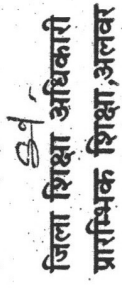 जिला शिक्षा अधिकारी
प्रारम्भिक शिक्षा,अलवर